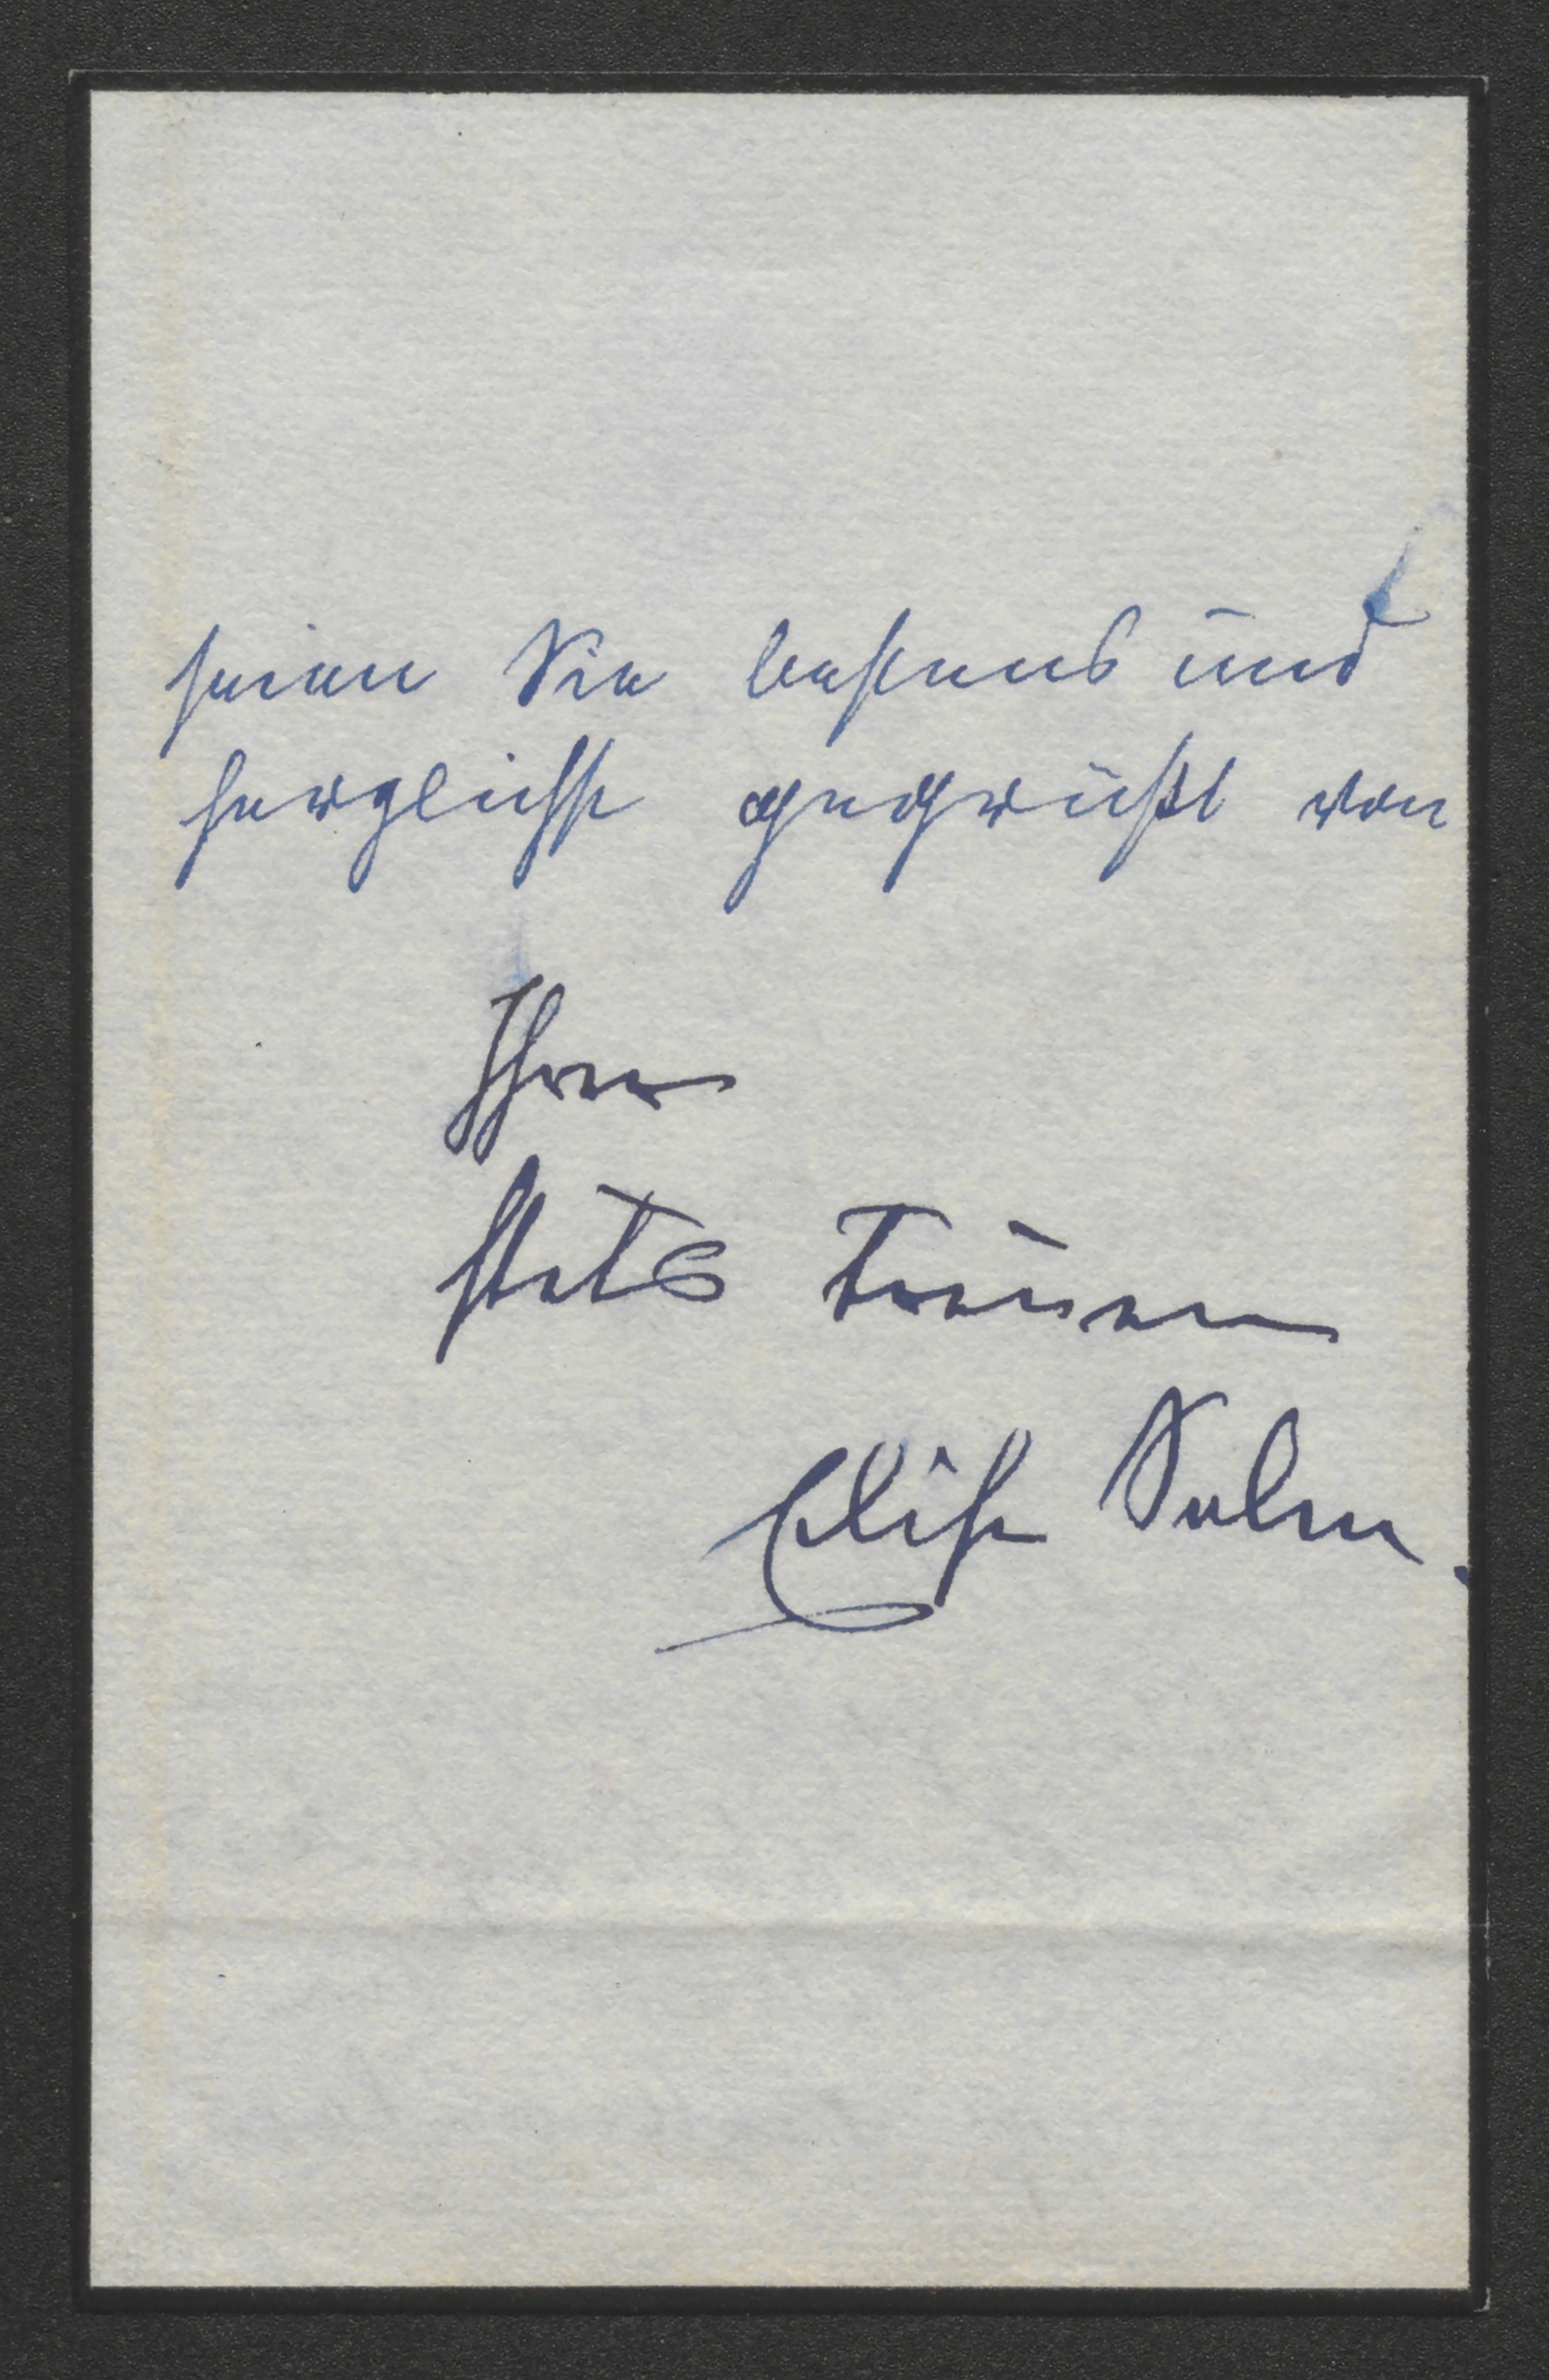 seien Sie bestens und
herzlichst gegrüßt von
Ihrer
stets treuen
Elise